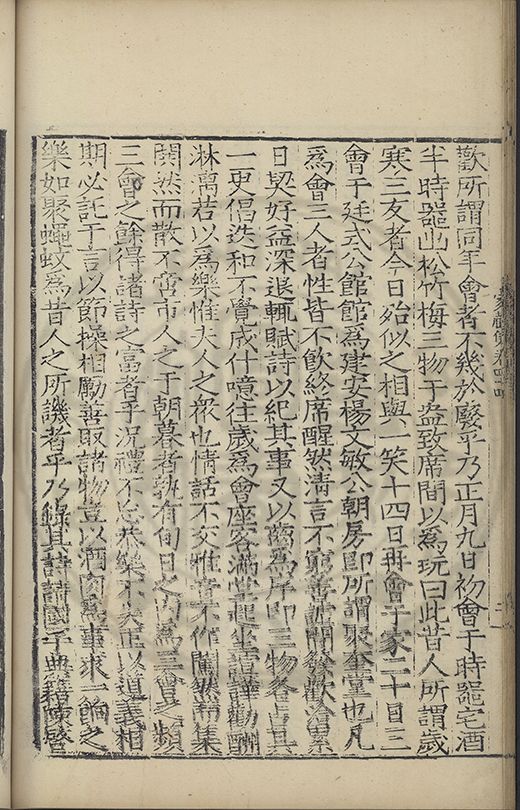 歡所謂同年會者不幾於廢乎乃正月九日初會于時噐宅酒
半時噐出松竹梅三物于盎致席間以為玩曰此昔人所謂歲
寒三友者今日殆似之相與一笑十四日再會于家二十日三
會于廷式公館館為建安楊文敏公朝房即所謂聚奎堂也凡
為會三人者性皆不飲終席醒然清言不窮善謔間發歡洽累
日契好益深退輒賦詩以紀其事又以齒為序即三物各占其
一更倡迭和不覺成什噫往歲為會座客滿堂起坐諠譁勸酬
淋漓若以為樂惟夫人之衆也情話不交雅音不作闐然而集
鬨然而散不啻市人之于朝暮者孰有旬日之内為三會又頻
三會之餘得諸詩之富者乎況禮不忘恭樂不失正以道義相
期必託于言以節操相勵善取諸物豈以酒肉為事求一餉之
樂如聚蠅蚊為昔人之所譏者乎乃錄其詩請國子典籍陳